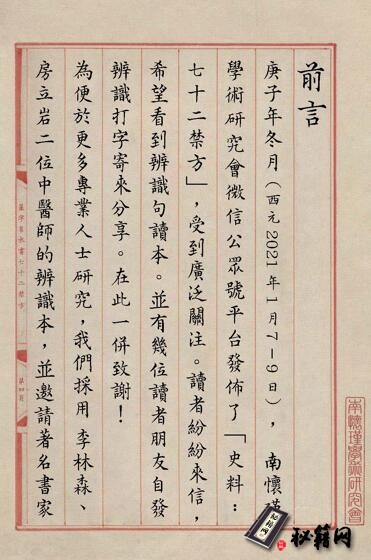 前言
庚子年冬月（西元2021年1月7—9日），南懷瑾
學術研究會微信公眾號平台發佈了「史料：
七十二禁方」，受到廣泛關注。讀者紛紛來信，
希望看到辨識句讀本。並有幾位讀者朋友自發
辨識打字寄來分享。在此一併致謝！
為便於更多專業人士研究，我們採用李林森、
房立岩二位中醫師的辨識本，並邀請著名書家
第四頁
南懷瑾學術研究會
秘籍网